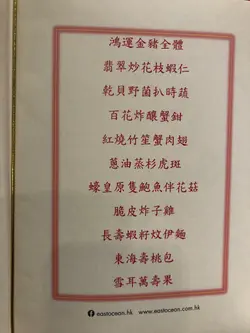 鴻運金豬全體
翡翠炒花枝蝦仁
乾貝野菌扒時蔬
百花炸釀蟹鉗
紅燒竹笙蟹肉翅
蔥油蒸杉虎斑
蠔皇原隻鮑魚伴花菇
脆皮炸子雞
長壽蝦籽炆伊麵
東海壽桃包
雪耳萬壽果
eastocean.hk www.eastocean.com.hk